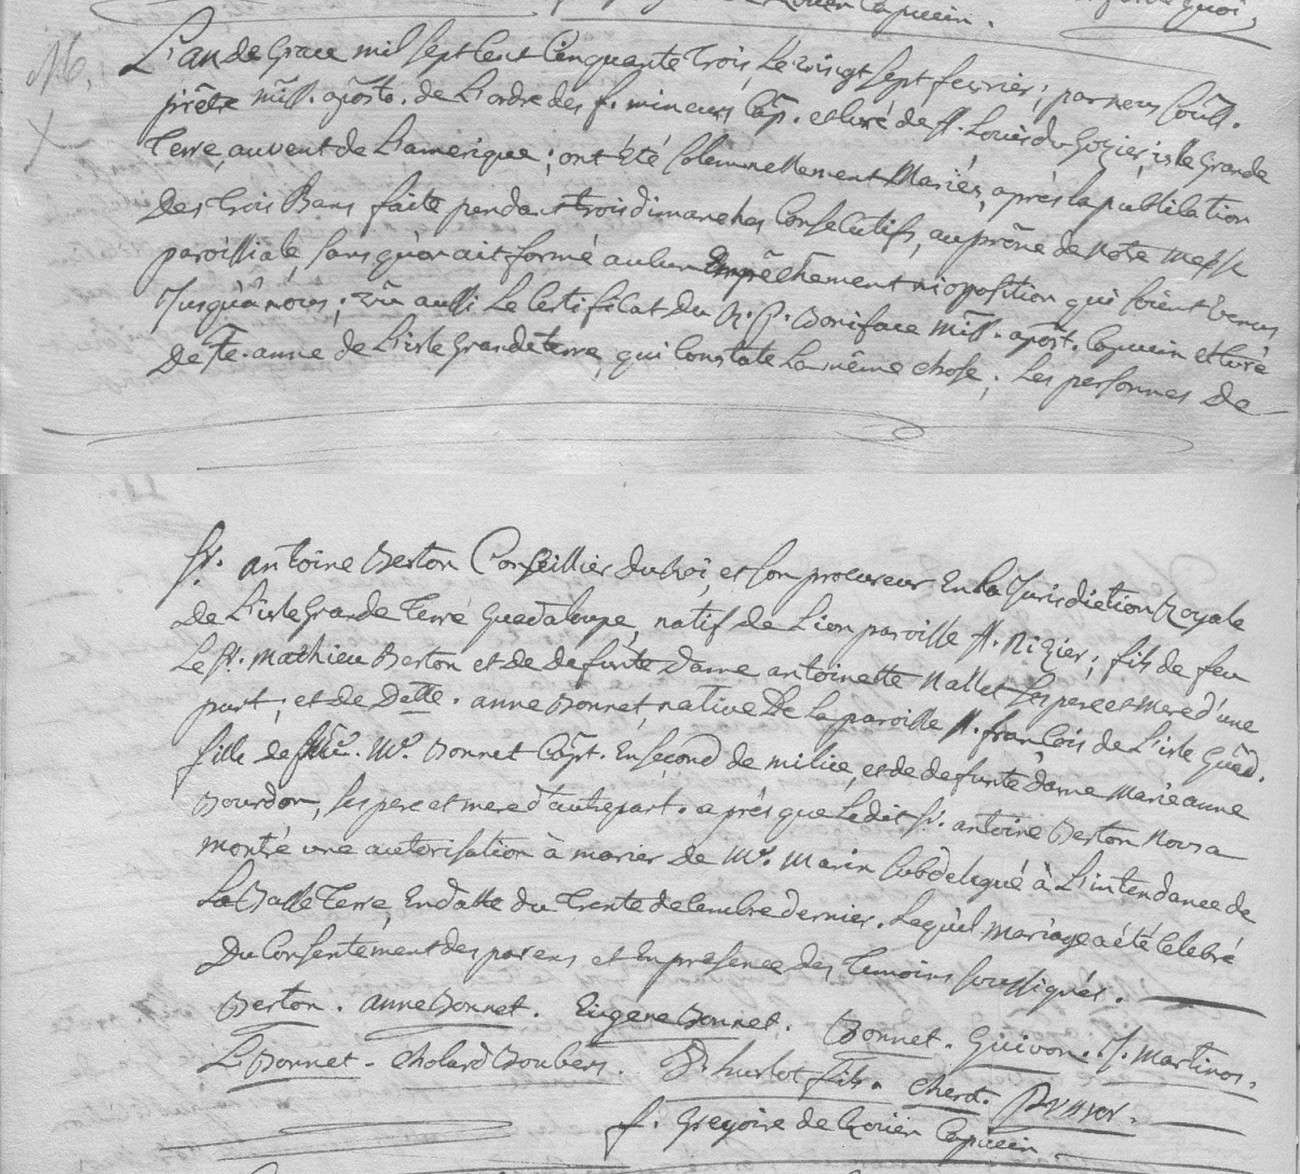 de Rouën Capucin. quoi,
M.
L'an de Grace mil sept cent Cinquante trois, Le vingt sept fevrier; par nous Soûss.
prêtre miss. aposto. de L'ordre des f. mineurs Cap. et curé de st. Louis du Gozier, isle Grande
Terre, au vent de L'amerique; ont Eté Solemnellement Mariés, aprés la publication
Des trois Bans faite pendant trois dimanches Consecutifs, au prône de notre messe
paroissiale, sans qu'on ait formé aucun Empêchement ni oposition qui soient venus
Jusqu'à nous; vû aussi Le Certificat du R. P. Boniface miss. apost. Capucin et Curé
De ste. anne de L'isle Grande terre, qui Constate La même chose; Les personnes De
Sr. antoine Berton Conseillier du Roi, et son procureur En La Jurisdiction Royale
de L'isle Grande Terre Guadaloupe, natif de Lion paroisse st. Nizier; fils de feu
Le Sr. Mathieu Berton et de defunte Dame antoinette Nallet ses pere et mere d'une
part; et de Delle. anne Bonnet, native De la paroisse st. françois de L'isle Guad.
fille de Mr. Bonnet Capt. En second de milice, et de defunte dame Marie anne
Bourdon, ses pere et mere d'autre part. aprés que Ledit Sr. antoine Berton Nous a
montré une autorisation à marier de Mr. Marin Subdelegué à L'intendance de
La Basse Terre, En datte du Trente decembre dernier. Lequel mariage a été Celebré
Du Consentement des parens et En presence des Temoins soussignés.
Berton. anne Bonnet. Eugene Bonnet. Bonnet. Guivon. J. Martinos.
L. Bonnet. Cholard Boubers. hurlot fils. Cherot.
f. Gregoire de Rouën Capucin.